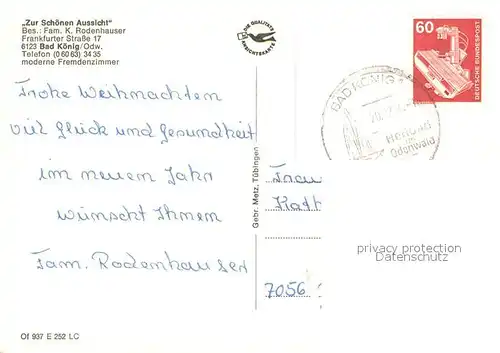 „Zur Schönen Aussicht"
Bes.: Fam. K. Rodenhauser
Frankfurter Straße 17
6123 Bad König/Odw.
Telefon (06063) 3435
moderne Fremdenzimmer
Frohe Weihnachten
viel Glück und Gesundheit
im neuen Jahr
wünscht Ihnen
Fam. Rodenhauser
Of 937 E 252 LC
Gebr. Metz, Tübingen
DIE QUALITÄTS
ANSICHTSKARTE
60
DEUTSCHE BUNDESPOST
BAD KÖNIG
im
Odenwald
Frau
Kath
7056
privacy protection
Datenschutz